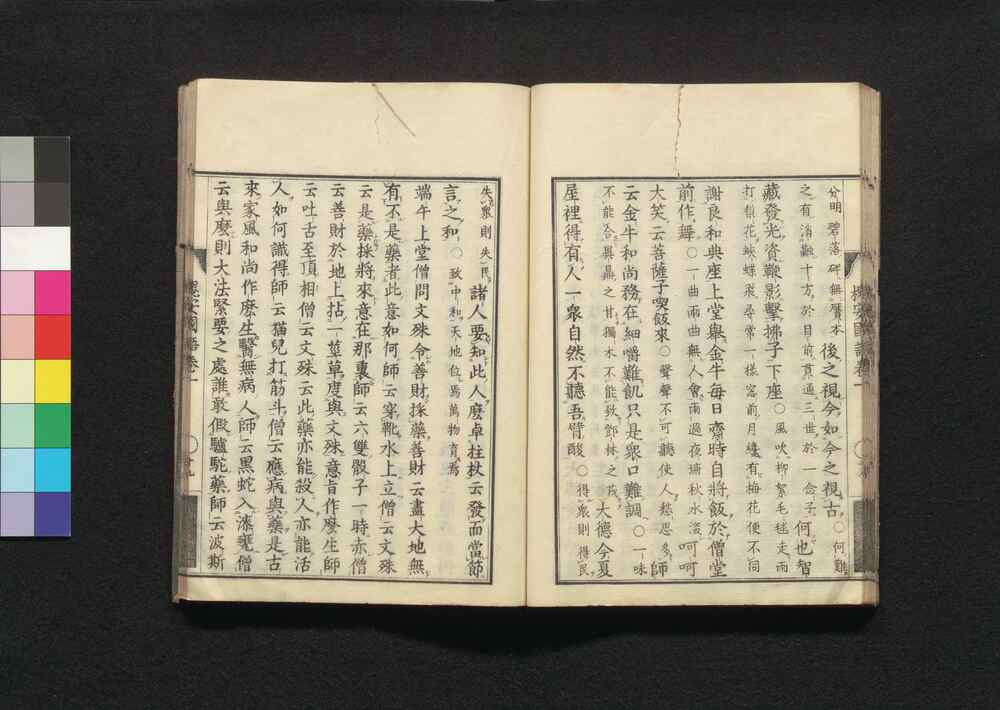 兮明碧落碑無贋本後之視今如今之視古○何難
之有消融十方於目前貫通三世於一念子何也智
藏發光資鞭影擊拂子下座○風吹柳絮毛毬走雨
打梨花蛺蝶飛尋常一樣窓前月纔有梅花便不同
謝良和典座上堂舉金牛每日齋時自將飯於僧堂
前作舞○一曲兩曲無人會雨過夜塘秋水深呵呵
大笑云菩薩子喫飯來○聲聲不可聽使人愁思多師
云金牛和尚務在細嚼難飢只是衆口難調○一味
不能合異羣之甘獨木不能致鄧林之茂大德今夏
屋裡得有人一衆自然不聽吾臂酸○得衆則得民
失衆則失民諸人要知此人麽卓柱杖云發而當節
言之和○致中和天地位焉萬物育焉
端午上堂僧問文殊令善財採藥善財云盡大地無
有不是藥者此意如何師云穿靴水上立僧云文殊
云是藥採將來意在那裏師云六雙骰子一時赤僧
云善財於地上拈一莖草度與文殊意旨作麽生師
云吐舌至頂相僧云文殊云此藥亦能殺人亦能活
人如何識得師云猫兒打筋斗僧云應病與藥是古
來家風和尚作麽生醫無病人師云黑蛇入漆甕僧
云與麽則大法緊要之處誰敢假驢駝藥師云波斯
槐安國語卷一